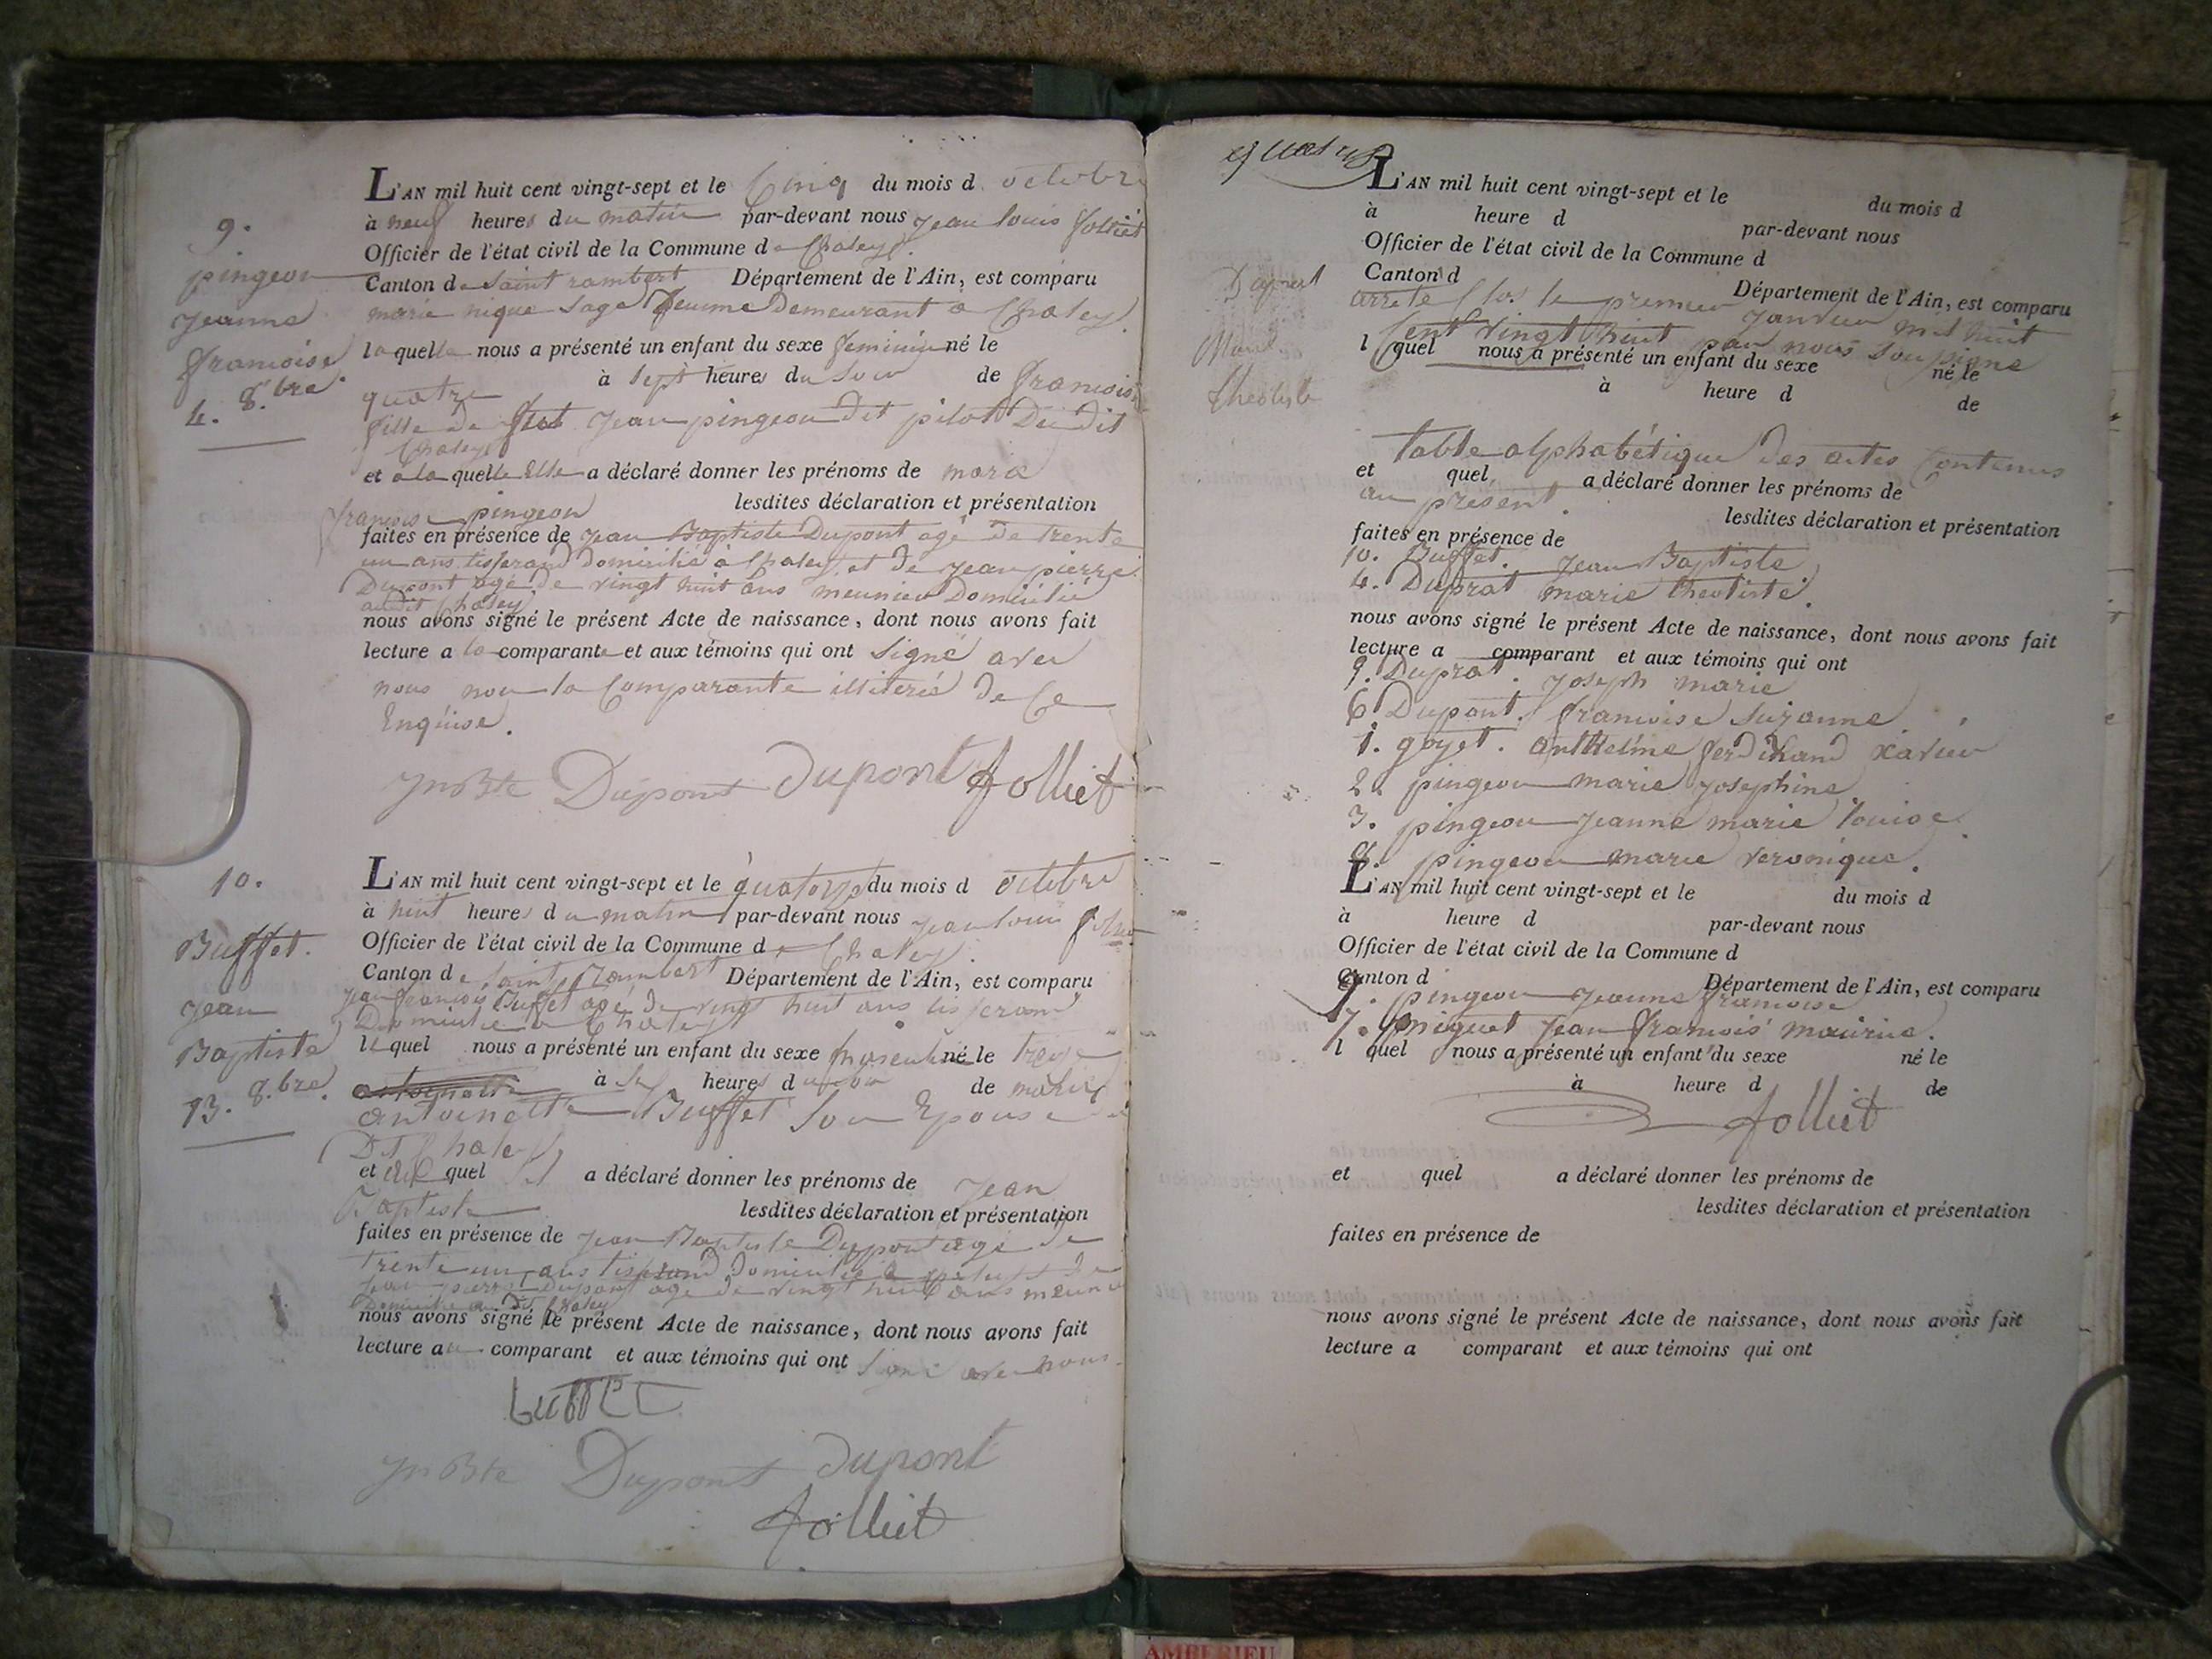 9.
pingeon
Jeanne
francoise
4. 8.bre
L'AN mil huit cent vingt-sept et le Cinq du mois d octobre
à neuf heures du matin par-devant nous jean louis folliet
Officier de l'état civil de la Commune de Chaley
Canton de Saint rambert Département de l'Ain, est comparu
marie nique sage femme Demeurant a Chaley
laquelle nous a présenté un enfant du sexe feminin né le
quatre à sept heures du soir de francoise
fille de feu jean pingeon dit pilot Du dit
Chaley
et a laquelle Elle a déclaré donner les prénoms de
francoise pingeon lesdites déclaration et présentation
faites en présence de jean Baptiste Dupont agé de trente
un ans tisserand domicilié à Chaley et de jean pierre
Dupont agé de vingt huit ans meunier Domicilié
audit Chaley
nous avons signé le présent Acte de naissance, dont nous avons fait
lecture a la comparante et aux témoins qui ont signé avec
nous non la Comparante illiterée de Ce
Enquise.
jn Bte Dupont Dupont folliet
10.
Buffet.
jean
Baptiste
13. 8.bre.
L'AN mil huit cent vingt-sept et le quatorze du mois d octobre
à huit heures du matin par-devant nous jean louis
Officier de l'état civil de la Commune de Chaley.
Canton de Saint Rambert Département de l'Ain, est comparu
jean francois Buffet agé de vingt huit ans tisserand
Domicilié a Chaley
lequel nous a présenté un enfant du sexe masculin né le treize
à heures du soir de marie
antoinette Buffet son Epouse
Dit Chaley
et auquel il a déclaré donner les prénoms de jean
Baptiste lesdites déclaration et présentation
faites en présence de jean Baptiste Dupont agé de
trente un ans tisserand domicilié a
jean pierre Dupont agé de vingt huit ans meunier
Domicilié au dit Chaley
nous avons signé le présent Acte de naissance, dont nous avons fait
lecture au comparant et aux témoins qui ont signé avec nous
buffet
jn Bte Dupont Dupont
folliet
L'AN mil huit cent vingt-sept et le du mois d
à heure d par-devant nous
Officier de l'état civil de la Commune d
Canton d Département de l'Ain, est comparu
arrete Clos le premier janvier mil huit
Cent vingt huit par nous soussigné
l quel nous a présenté un enfant du sexe né le
à heure d de
Table alphabétique des actes Contenus
et quel a déclaré donner les prénoms de
au present.
lesdites déclaration et présentation
faites en présence de
10. Buffet. jean Baptiste
4. Duprat marie theotiste.
nous avons signé le présent Acte de naissance, dont nous avons fait
lecture a comparant et aux témoins qui ont
Duprat. joseph marie
6 Dupont. francoise Suzanne
1. goyet. anthelme ferdinand xavier
2. pingeon marie josephine
3. pingeon jeanne marie louise
8. pingeon marie veronique.
L'AN mil huit cent vingt-sept et le du mois d
à heure d par-devant nous
Officier de l'état civil de la Commune d
Canton d Département de l'Ain, est comparu
9. pingeon jeanne francoise
7. miguet jean francois maurice.
l quel nous a présenté un enfant du sexe né le
à heure d de
folliet
et quel a déclaré donner les prénoms de
lesdites déclaration et présentation
faites en présence de
nous avons signé le présent Acte de naissance, dont nous avons fait
lecture a comparant et aux témoins qui ont
AMBERIEU